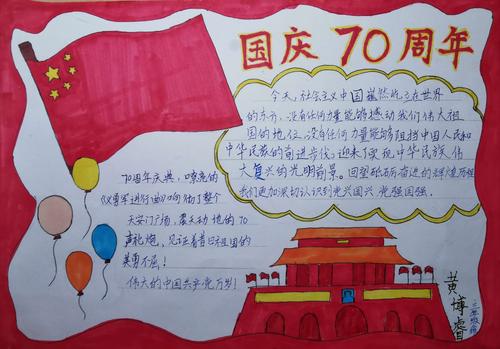 国庆70周年
今天，社会主义中国巍然屹立在世界
的东方，没有任何力量能够撼动我们伟大祖
国的地位，没有任何力量能够阻挡中国人民和
中华民族的前进步伐。迎来了实现中华民族伟
大复兴的光明前景。回望砥砺奋进的辉煌历程
我们更加深切认识到党兴国兴 党强国强.
70周年庆典，嘹亮的
《义勇军进行曲》响彻了整个
天安门广场，震天动地的70
声礼炮，见证着昔日祖国的
英勇不屈！
伟大的中国共产党万岁！
黄博睿